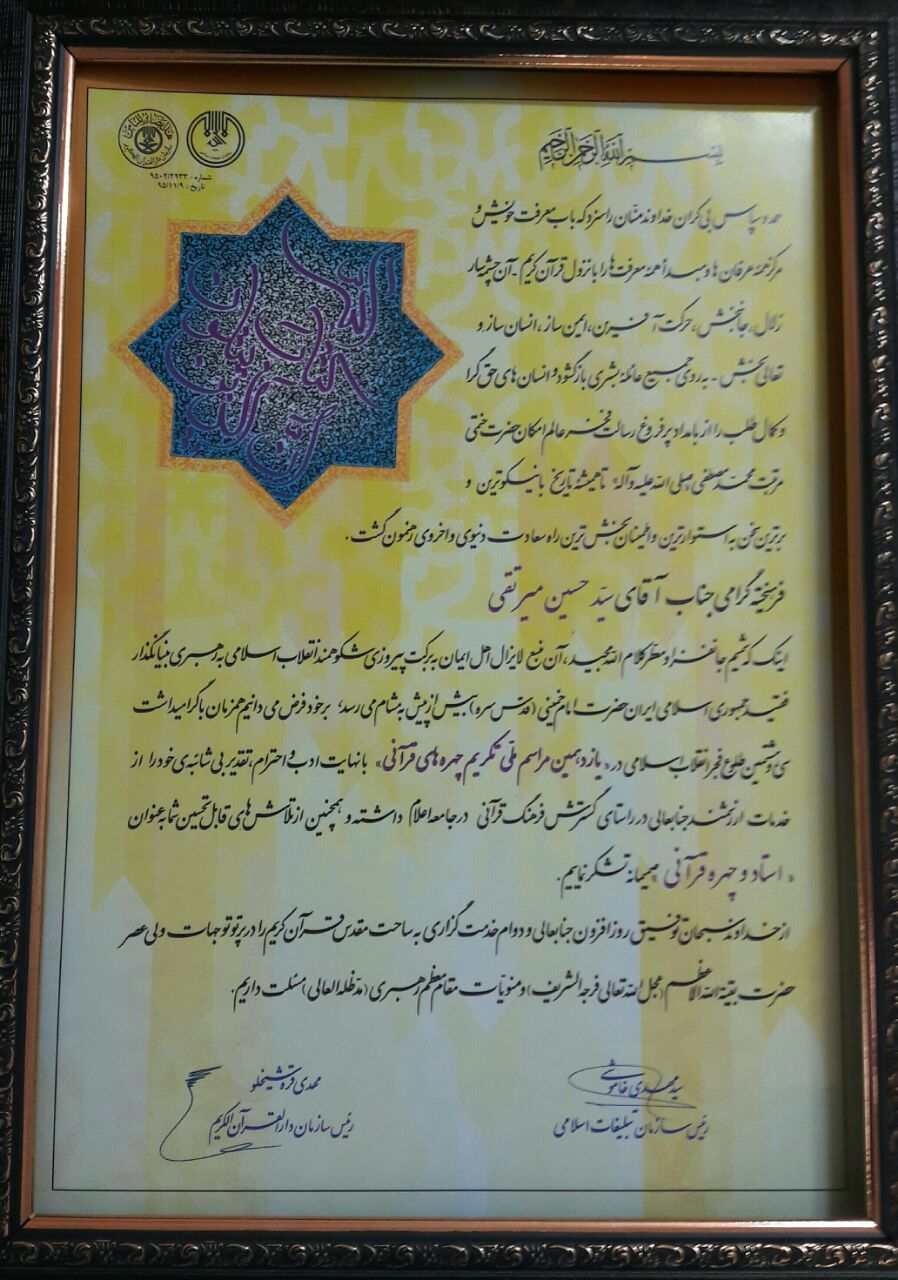 بسم الله الرحمن الرحیم
شماره: ۹۵۰۲/۲۹۳۳
تاریخ: ۹۵/۱۱/۹
حمد و سپاس بی کران خداوند منّان را سزد که باب معرفت خویش و
مرکز همۀ عرفان ها و مبدأ همۀ معرفت ها را با نزول قرآن کریم - آن چشمه سار
زلال، جانبخش، حرکت آفرین، ایمن ساز، انسان ساز و
تعالی بخش - به روی جمیع عائلۀ بشری باز گشود و انسان های حق گرا
و کمال طلب را از بامداد پر فروغ رسالت فخر عالم امکان حضرت ختمی
مرتبت محمد مصطفی «صلی الله علیه و آله» تا همیشۀ تاریخ با نیکوترین و
برترین سخن به استوارترین و اطمینان بخش ترین راه سعادت دنیوی و اخروی رهنمون گشت.
فرهیختۀ گرامی جناب آقای سیّد حسین میرتقی
اینک که شمیم جانفزا و معطر کلام الله مجید، آن منبع لایزال اهل ایمان به برکت پیروزی شکوهمند انقلاب اسلامی به رهبری بنیانگذار
فقید جمهوری اسلامی ایران حضرت امام خمینی (قدس سره) بیش از پیش به مشام می رسد؛ بر خود فرض می دانیم همزمان با گرامیداشت
سی و هشتمین طلوع فجر انقلاب اسلامی در «یازدهمین مراسم ملّی تکریم چهره های قرآنی» با نهایت ادب و احترام، تقدیر بی شائبه ی خود را از
خدمات ارزشمند جنابعالی در راستای گسترش فرهنگ قرآنی در جامعه اعلام داشته و همچنین از تلاش های قابل تحسین شما به عنوان
«استاد و چهره قرآنی» صمیمانه تشکر نماییم.
از خداوند سبحان توفیق روز افزون جنابعالی و دوام خدمت گزاری به ساحت مقدس قرآن کریم را در پرتو توجهات ولی عصر
حضرت بقیة الله الاعظم (عجل الله تعالی فرجه الشریف) و منویّات مقام معظم رهبری (مدّ ظله العالی) مسئلت داریم.
سید مهدی خاموشی
رئیس سازمان تبلیغات اسلامی
مهدی قره شیخلو
رئیس سازمان دارالقرآن الکریم